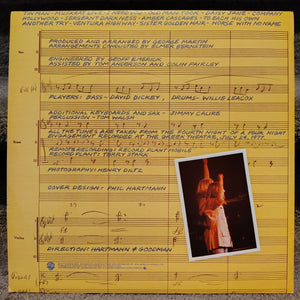 TIN MAN · MUSKRAT LOVE · DAISY JANE · COMPANY
HOLLYWOOD · SERGEANT DARKNESS · AMBER CASCADES · TO EACH HIS OWN
ANOTHER TRY · VENTURA HIGHWAY · SISTER GOLDEN HAIR · HORSE WITH NO NAME
PRODUCED AND ARRANGED BY GEORGE MARTIN
ARRANGEMENTS CONDUCTED BY ELMER BERNSTEIN
ENGINEERED BY GEOFF EMERICK
ASSISTED BY TOM ANDERSON AND COLIN FAIRLEY
PLAYERS: BASS - DAVID DICKEY, DRUMS - WILLIE LEACOX
ADDITIONAL KEYBOARDS AND SAX - JIMMY CALIRE
PERCUSSION - TOM WALSH
ALL THE TUNES ARE TAKEN FROM THE FOURTH NIGHT OF A FOUR NIGHT
ENGAGEMENT RECORDED AT THE GREEK THEATER, JULY 24, 1977
REMOTE RECORDING: RECORD PLANT MOBILE
RECORD PLANT: TERRY STARK
PHOTOGRAPHY: HENRY DILTZ
COVER DESIGN: PHIL HARTMANN
Violin
DIRECTION: HARTMANN & GOODMAN